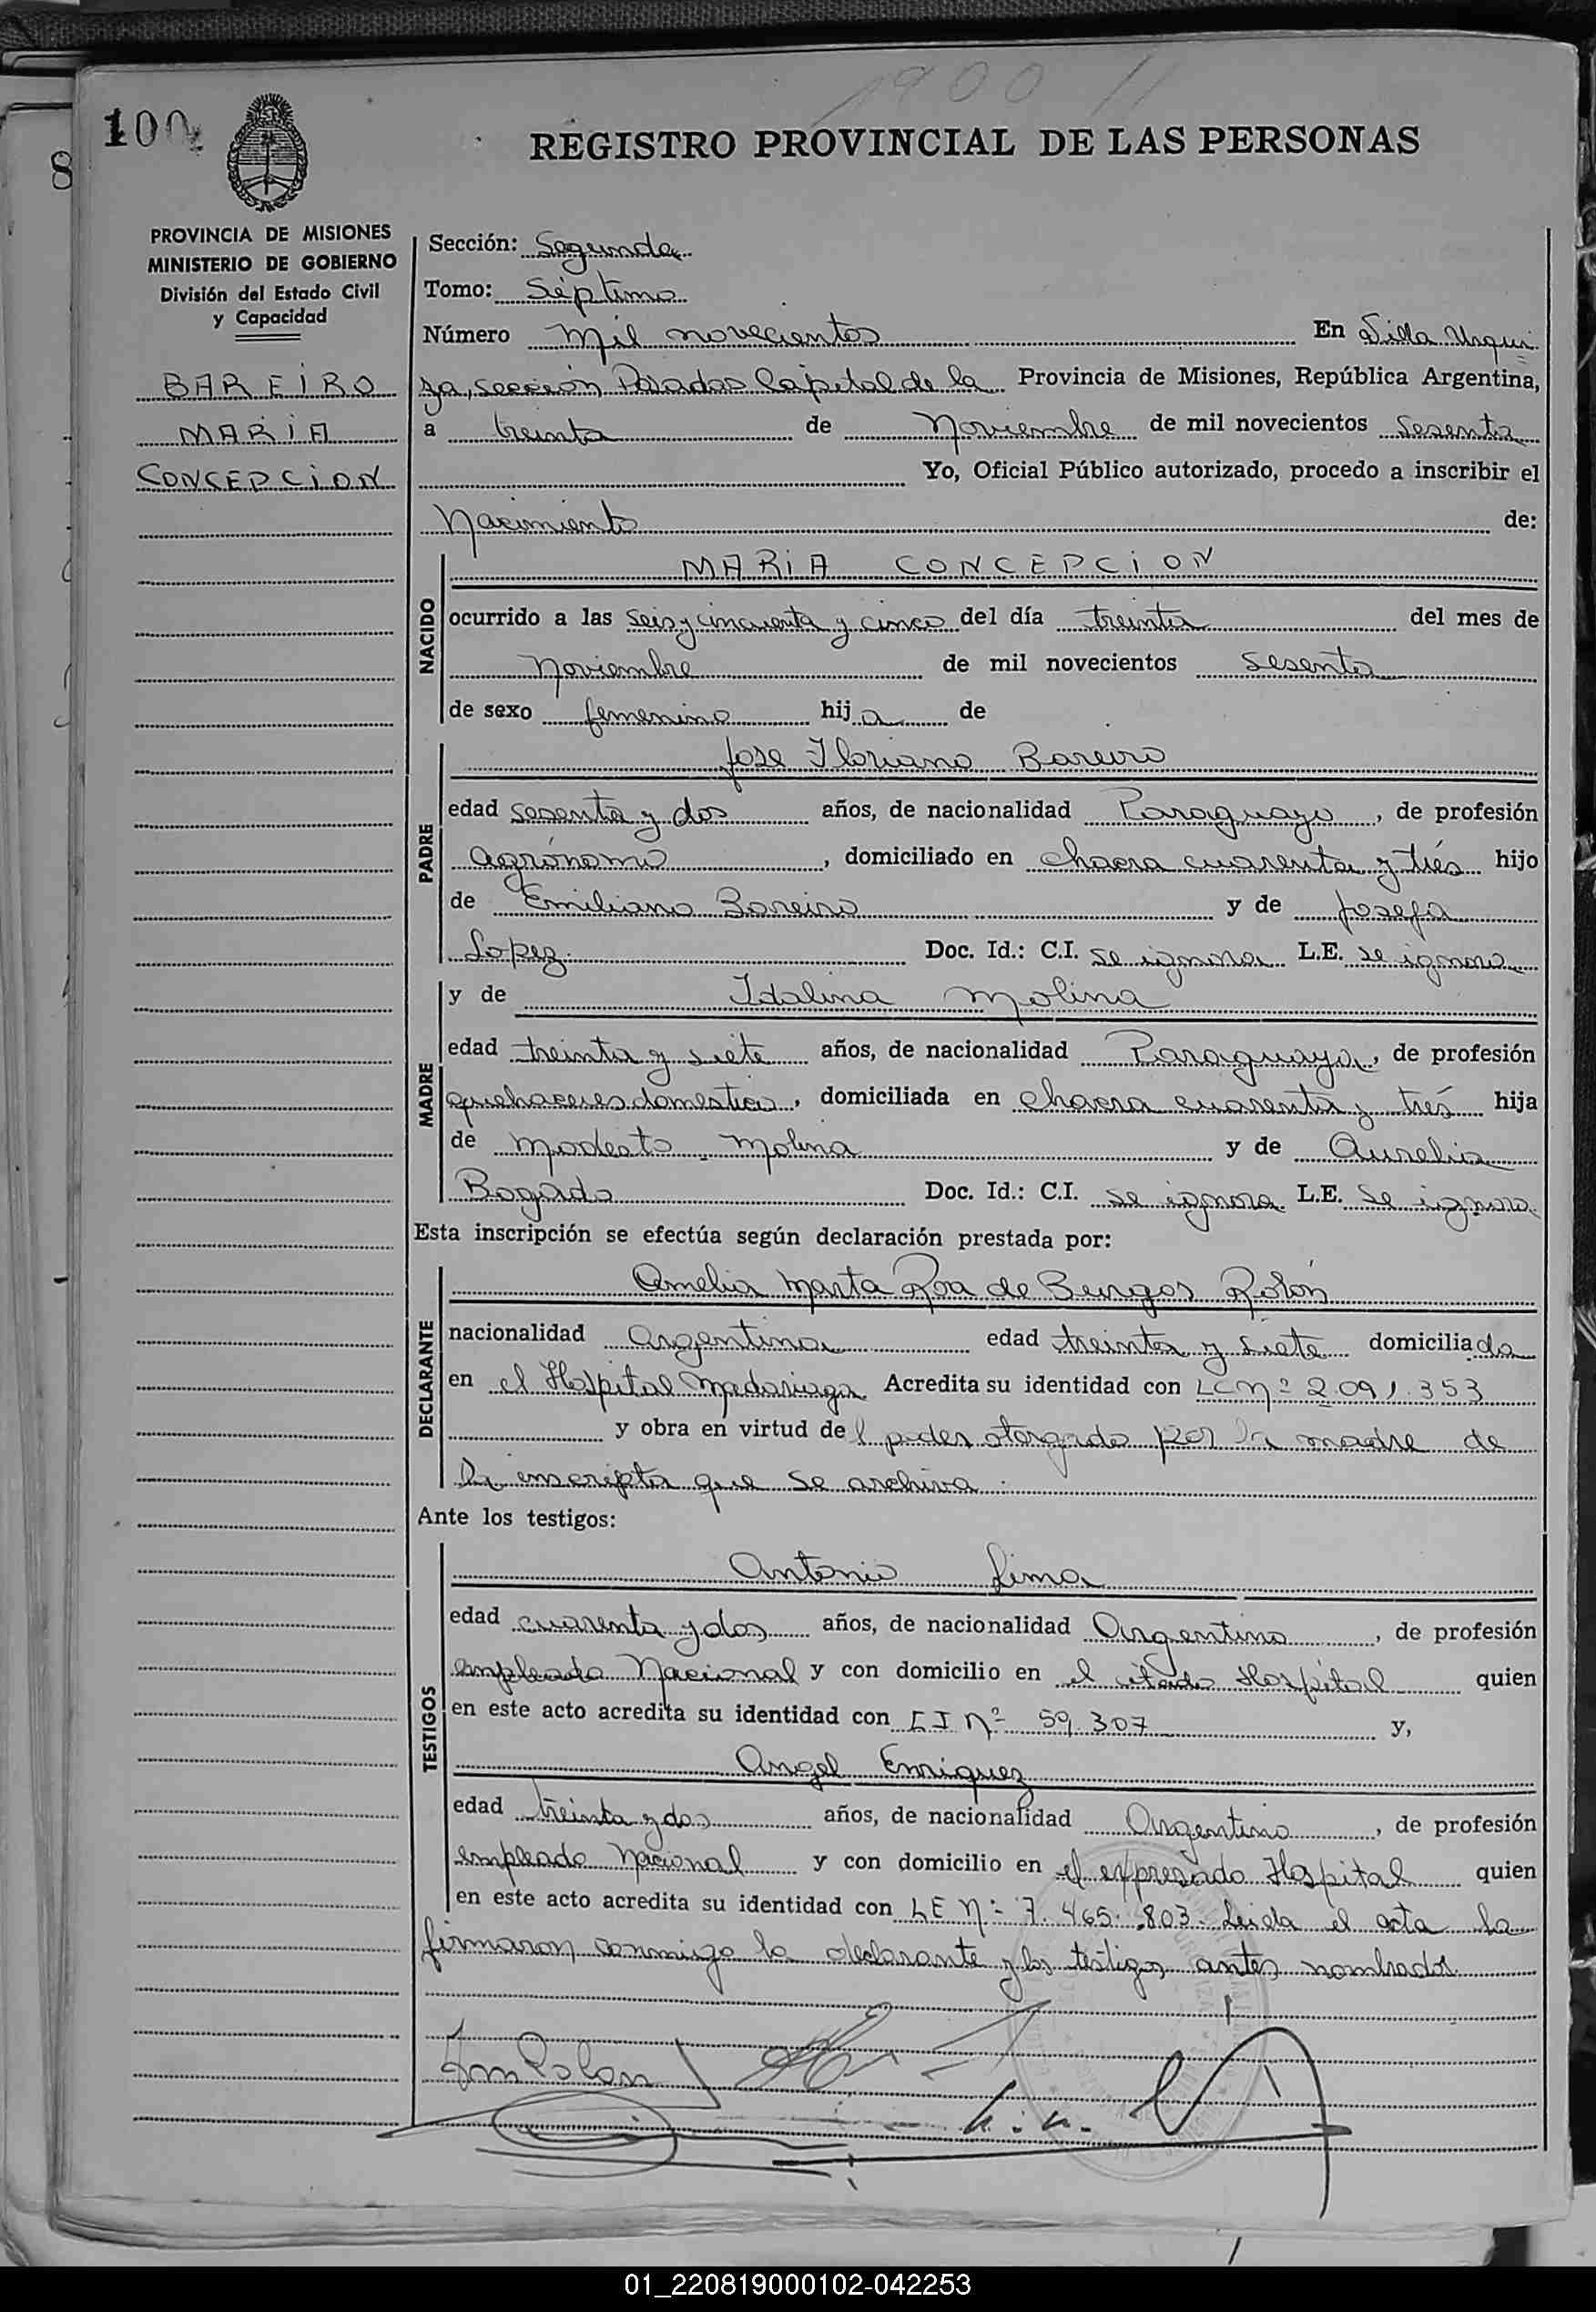 1900 //
100
REGISTRO PROVINCIAL DE LAS PERSONAS
8
PROVINCIA DE MISIONES
MINISTERIO DE GOBIERNO
División del Estado Civil
y Capacidad
BAREIRO
MARIA
CONCEPCION
Sección: Segunda
Tomo: Séptimo
Número Mil novecientos En Villa Urqui
za, sección Posadas Capital de la Provincia de Misiones, República Argentina,
a treinta de Noviembre de mil novecientos sesenta
Yo, Oficial Público autorizado, procedo a inscribir el
Nacimiento de:
NACIDO
MARIA CONCEPCION
ocurrido a las seis y cincuenta y cinco del día treinta del mes de
Noviembre de mil novecientos sesenta
de sexo femenino hija de
PADRE
Jose Floriano Bareiro
edad sesenta y dos años, de nacionalidad Paraguayo, de profesión
Agrónomo, domiciliado en chacra cuarenta y trés hijo
de Emiliano Bareiro y de Josefa
Lopez. Doc. Id.: C.I. se ignora L.E. se ignora
MADRE
y de Idalina Molina
edad treinta y siete años, de nacionalidad Paraguaya, de profesión
quehaceres domesticos, domiciliada en chacra cuarenta y trés hija
de Modesto Molina y de Aurelia
Bogado Doc. Id.: C.I. se ignora L.E. se ignora.
Esta inscripción se efectúa según declaración prestada por:
DECLARANTE
Amelia Marta Roa de Burgos Rolón
nacionalidad Argentina edad treinta y siete domiciliada
en el Hospital Madariaga Acredita su identidad con LC Nº 2.091.353
y obra en virtud del poder otorgado por la madre de
la inscripta que se archiva.
Ante los testigos:
TESTIGOS
Antonio Lima
edad cuarenta y dos años, de nacionalidad Argentino, de profesión
empleado Nacional y con domicilio en el citado Hospital quien
en este acto acredita su identidad con CI Nº 59.307 y,
Angel Enriquez
edad treinta y dos años, de nacionalidad Argentino, de profesión
empleado Nacional y con domicilio en el expresado Hospital quien
en este acto acredita su identidad con LE Nº 7.465.803. Leida el acta la
firmaron conmigo la declarante y los testigos antes nombrados
01_220819000102-042253